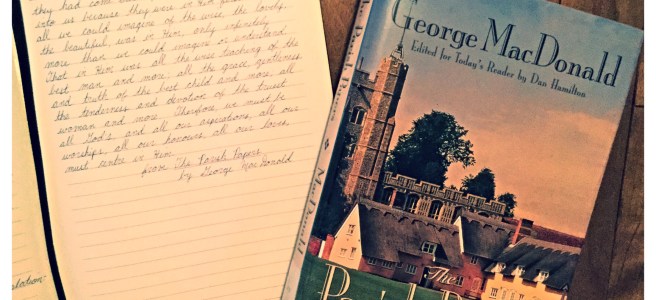 they had come
into us because they were in Him
all we could imagine of the wise, the lovely,
the beautiful, was in Him, only infinitely
more than we could imagine or understand.
That in Him was all the wise teaching of the
best man and more; all the grace, gentleness,
and truth of the best child and more; all
the tenderness and devotion of the truest
woman and more. Therefore we must be
all God's; and all our aspirations, all our
worships, all our honours, all our loves,
must centre in Him.
from The Parish Papers
by George MacDonald
MacDonald
George MacDonald
Edited for Today's Reader by Dan Hamilton
The